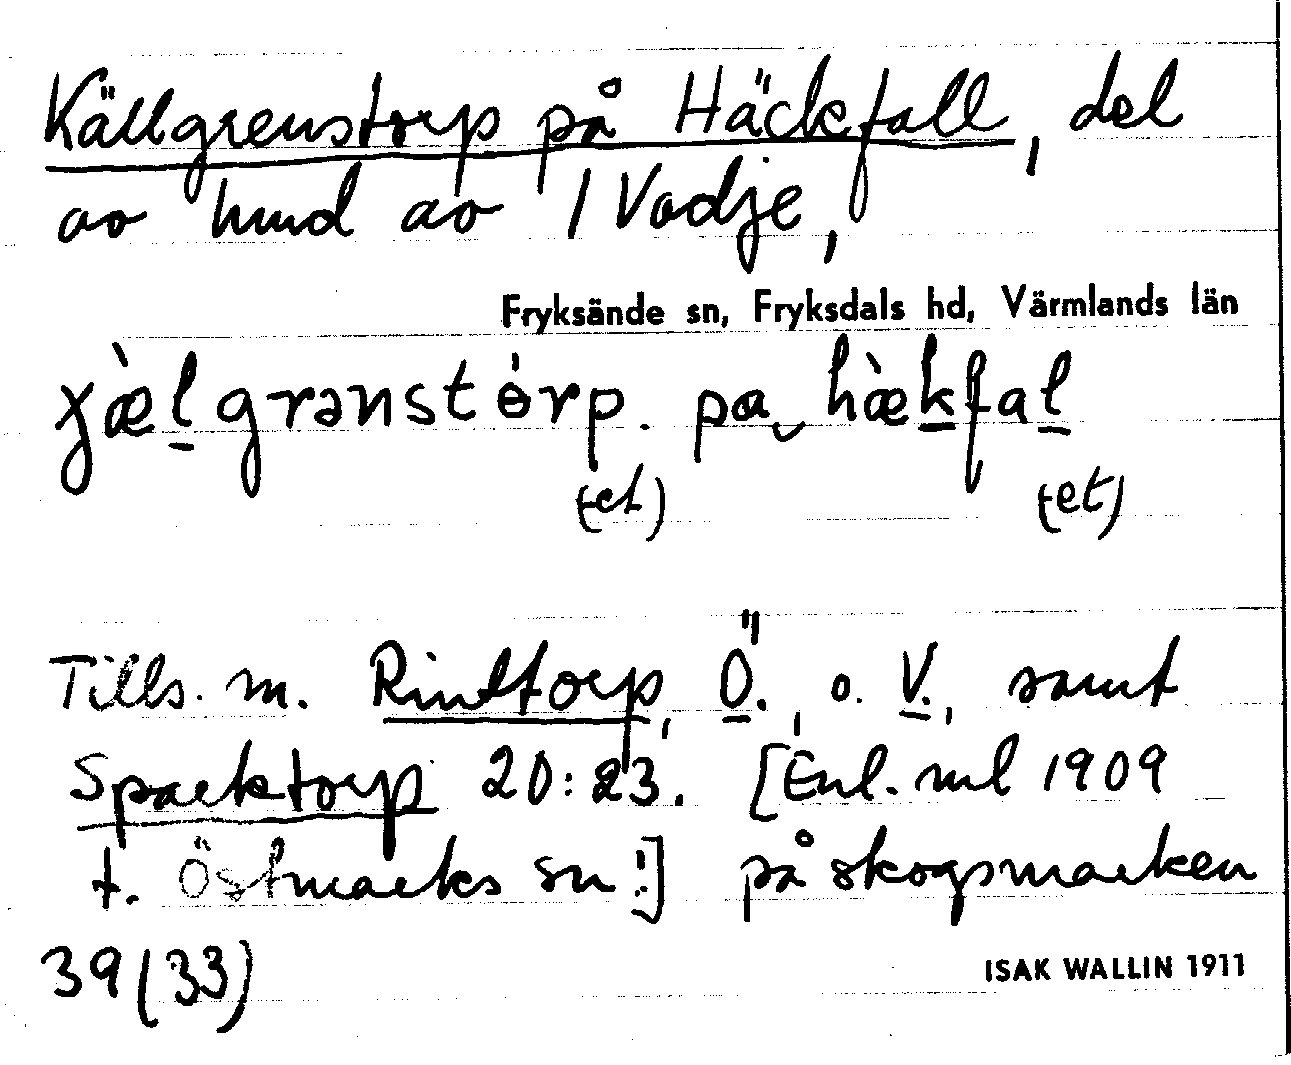 Källgrenstorp på Häckfall, del
av hmd av 1 Vadje,
Fryksände sn, Fryksdals hd, Värmlands län
χæ̀l̲grənstɵ̀rp. pa‿hæ̀k̲fal̲
(-et) (-et)
Tills. m. Rinttorp, Ö., o. V., samt
Sparktorp 20:23. [Enl. ml 1909
t. Östmarks sn!] på skogsmarken
39(33)
ISAK WALLIN 1911